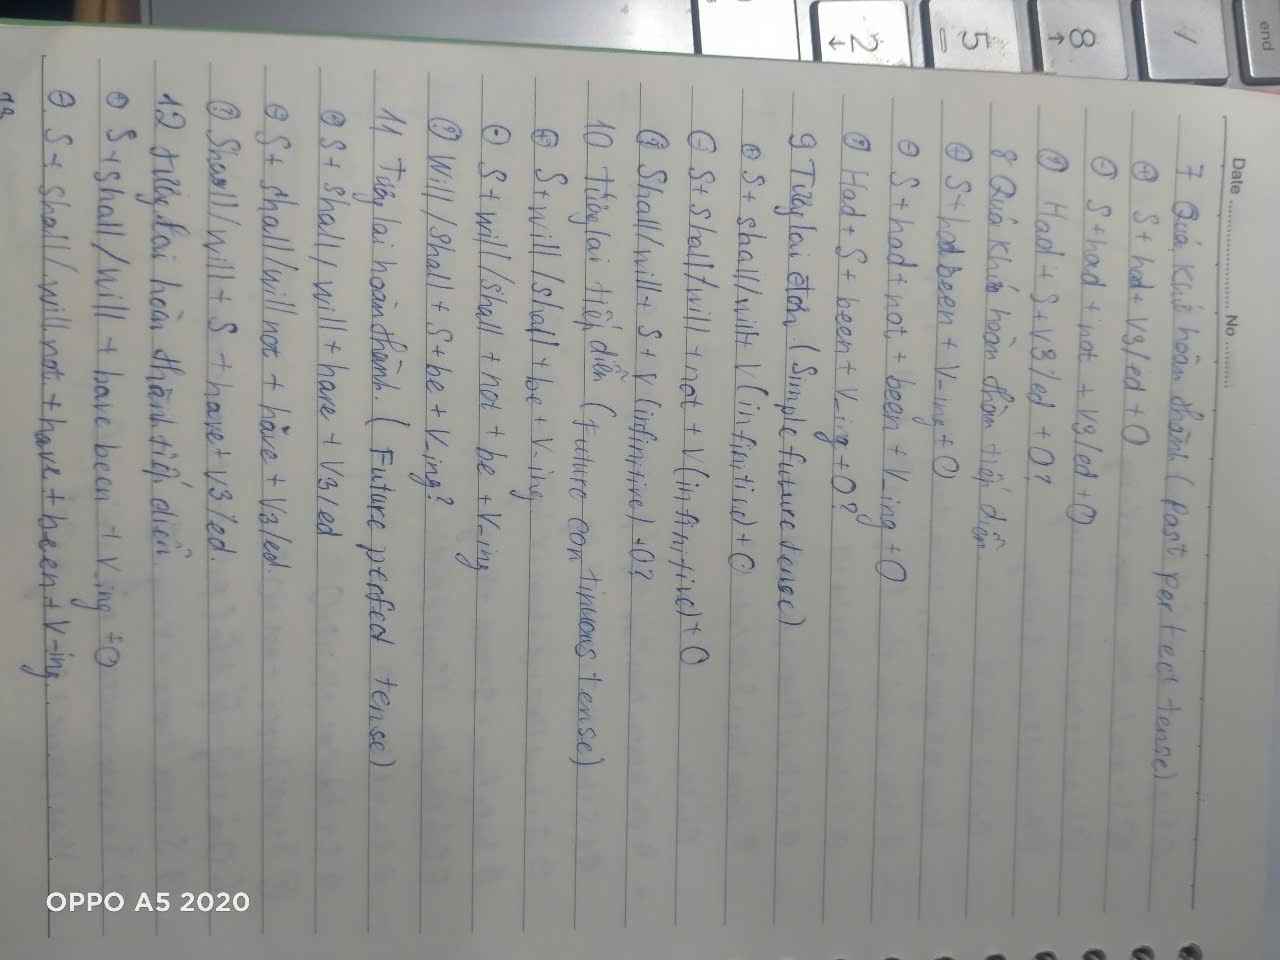 end
8 ↑
5
2 ↓
Date ........................ No ...........
7 Quá khứ hoàn thành (past perfect tense)
(+) S + had + V3/ed + O
(-) S + had + not + V3/ed + O
(?) Had + S + V3/ed + O?
8 Quá khứ hoàn thàn tiếp diễn
(+) S + had been + V-ing + O
(-) S + had + not + been + V-ing + O
(?) Had + S + been + V-ing + O?
9 Tương lai đơn (Simple future tense)
(+) S + shall/will + V (infinitive) + O
(-) S + shall/will + not + V (infinitive) + O
(?) Shall/will + S + V (infinitive) + O?
10 Tương lai tiếp diễn (Future continuous tense)
(+) S + will/shall + be + V-ing
(-) S + will/shall + not + be + V-ing
(?) Will/shall + S + be + V-ing?
11 Tương lai hoàn thành. (Future perfect tense)
(+) S + shall/will + have + V3/ed
(-) S + shall/will not + have + V3/ed.
(?) Shall/will + S + have + V3/ed.
12 tương lai hoàn thành tiếp diễn
(+) S + shall/will + have been + V-ing + O
(-) S + shall/will not + have + been + V-ing.
13
OPPO A5 2020